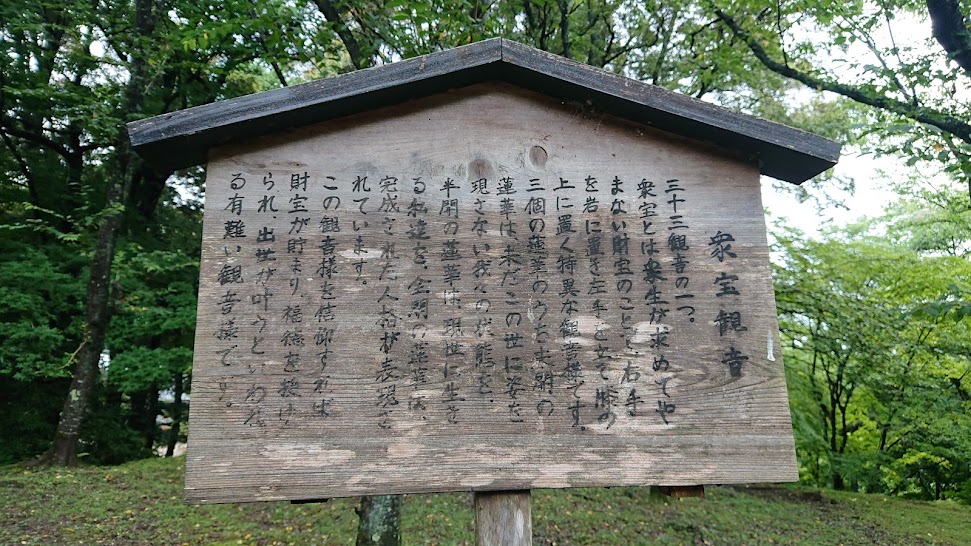 衆宝観音
三十三観音の一つ。
衆宝とは衆生が求めてや
まない財宝のことで、右手
を岩に置き左手を立て膝の
上に置く特異な観音様です。
三個の蓮華のうち未開の
蓮華は未だこの世に姿を
現さない我々の状態を、
半開の蓮華は、現世に生き
る私達を、全開の蓮華は、
完成された人格が表現さ
れています。
この観音様を信仰すれば
財宝が貯まり、福徳を授け
られ、出世が叶うといわれ
る有難い観音様です。